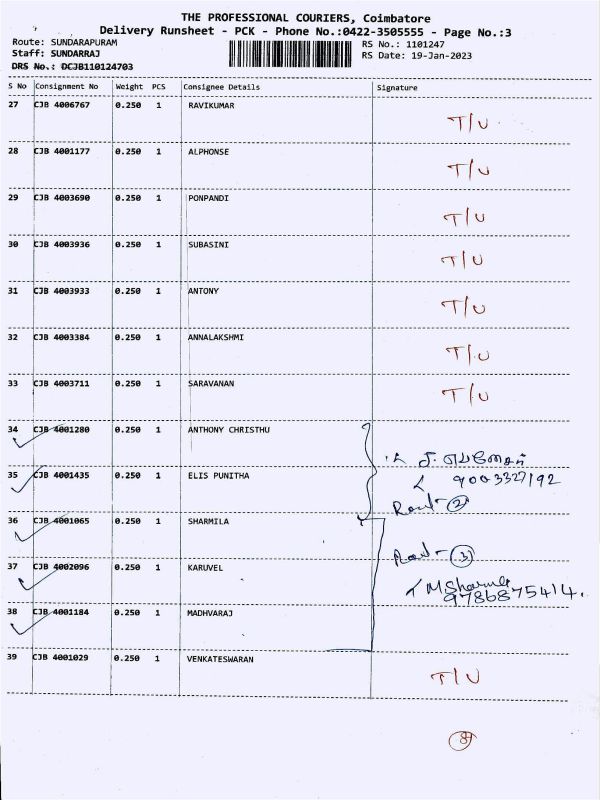 THE PROFESSIONAL COURIERS, Coimbatore
Delivery Runsheet - PCK - Phone No.:0422-3505555 - Page No.:3
Route: SUNDARAPURAM
RS No.: 1101247
Staff: SUNDARRAJ
RS Date: 19-Jan-2023
DRS No.: DCJB110124703
S No Consignment No Weight PCS Consignee Details Signature
27 CJB 4006767 0.250 1 RAVIKUMAR T/U
28 CJB 4001177 0.250 1 ALPHONSE T/U
29 CJB 4003690 0.250 1 PONPANDI T/U
30 CJB 4003936 0.250 1 SUBASINI T/U
31 CJB 4003933 0.250 1 ANTONY T/U
32 CJB 4003384 0.250 1 ANNALAKSHMI T/U
33 CJB 4003711 0.250 1 SARAVANAN T/U
34 CJB 4001280 0.250 1 ANTHONY CHRISTHU
35 CJB 4001435 0.250 1 ELIS PUNITHA
9003327192
2
36 CJB 4001065 0.250 1 SHARMILA
3
37 CJB 2002096 0.250 1 KARUVEL
9786875414.
38 CJB 4001184 0.250 1 MADHVARAJ
39 CJB 4001029 0.250 1 VENKATESWARAN T/U